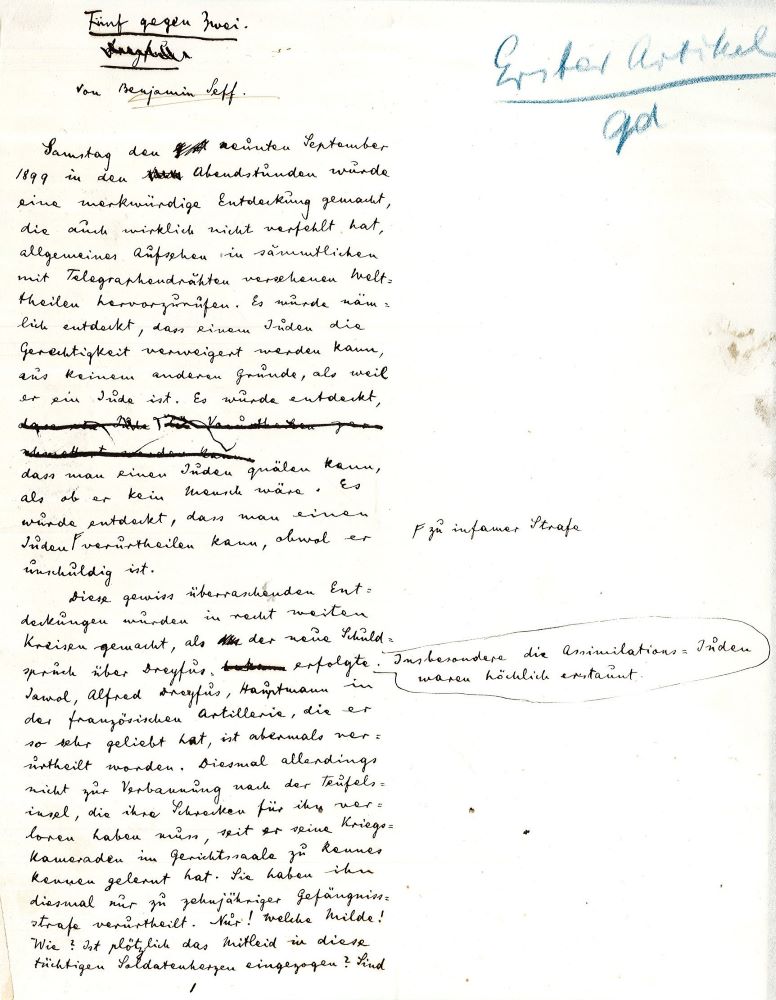 Fünf gegen Zwei.
von Benjamin Seff.
Erster Artikel
gd
Samstag den neunten September
1899 in den Abendstunden wurde
eine merkwürdige Entdeckung gemacht,
die auch wirklich nicht verfehlt hat,
allgemeines Aufsehen in sämmtlichen
mit Telegraphendrähten versehenen Welt=
theilen hervorzurufen. Es wurde näm=
lich entdeckt, dass einem Juden die
Gerechtigkeit verweigert werden kann,
aus keinem anderen Grunde, als weil
er ein Jude ist. Es wurde entdeckt,
dass man einen Juden quälen kann,
als ob er kein Mensch wäre. Es
wurde entdeckt, dass man einen
Juden verurtheilen kann, obwol er
unschuldig ist.
zu infamer Strafe
Diese gewiss überraschenden Ent=
deckungen wurden in recht weiten
Kreisen gemacht, als der neue Schuld=
spruch über Dreyfus erfolgte.
Insbesondere die Assimilations=Juden
waren höchlich erstaunt.
Jawol, Alfred Dreyfus, Hauptmann in
der französischen Artillerie, die er
so sehr geliebt hat, ist abermals ver=
urtheilt worden. Diesmal allerdings
nicht zur Verbannung nach der Teufels=
insel, die ihre Schrecken für ihn ver=
loren haben muss, seit er seine Kriegs=
kameraden im Gerichtssaale zu Rennes
kennen gelernt hat. Sie haben ihn
diesmal nur zu zehnjähriger Gefängniss=
strafe verurtheilt. Nur! welche Milde!
Wie? Ist plötzlich das Mitleid in diese
tüchtigen Soldatenherzen eingezogen? Sind
1